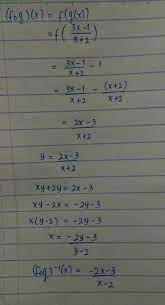 (fog)(x) = f(g(x))
= f(3x-1/x+2)
= 3x-1/x+2 - 1
= 3x-1/x+2 - (x+2)/x+2
= 2x-3/x+2
y = 2x-3/x+2
xy+2y = 2x-3
xy-2x = -2y-3
x(y-2) = -2y-3
x = -2y-3/y-2
(fog)⁻¹(x) = -2x-3/x-2